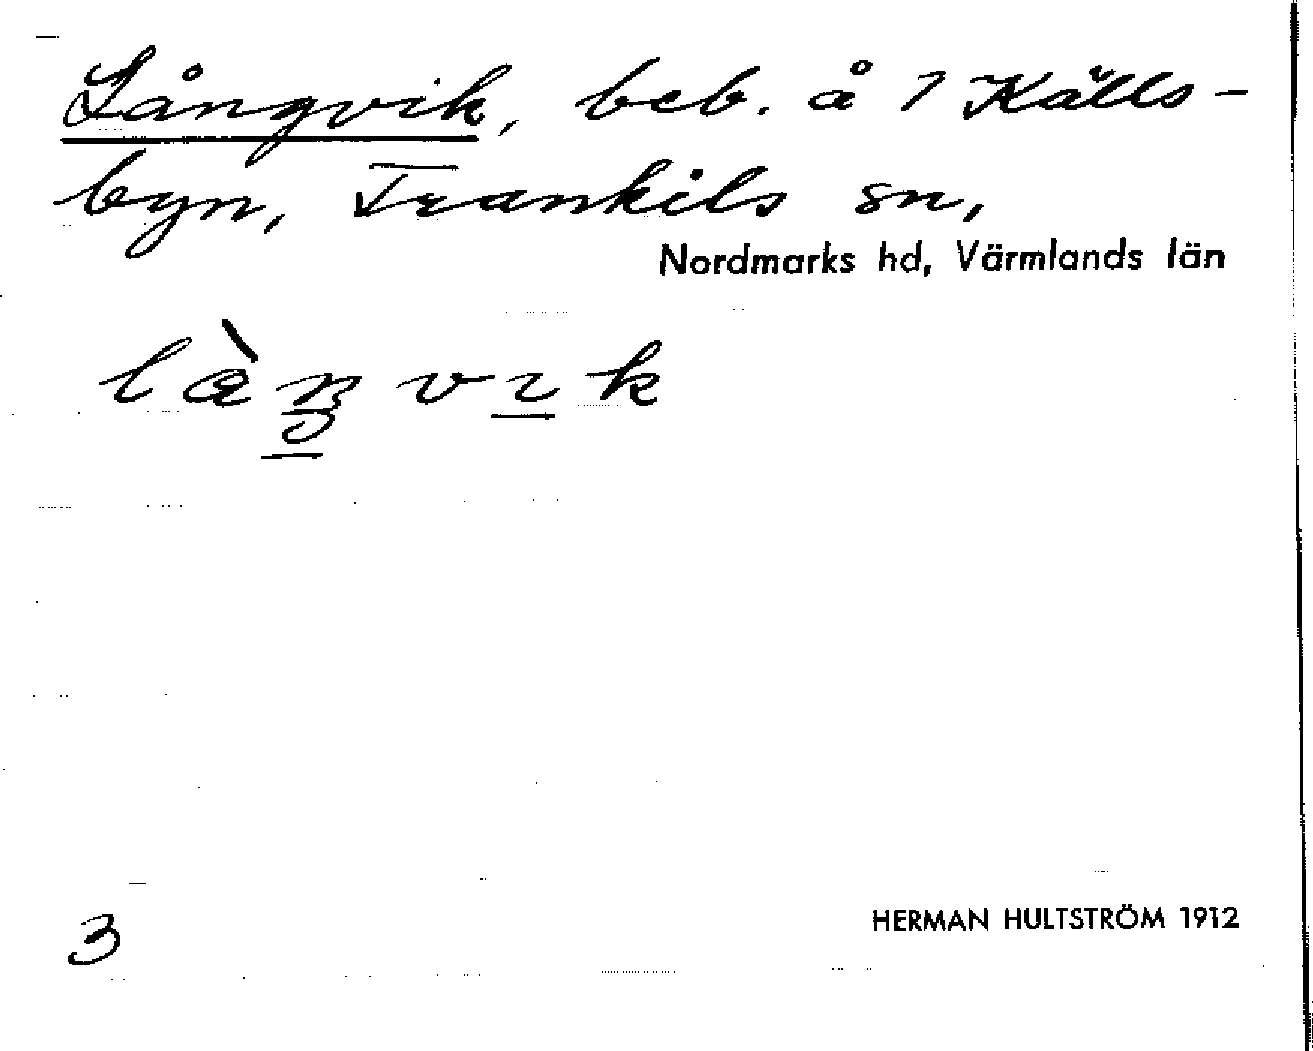 Långvik, beb. å 1 Källs-
byn, Trankils sn,
Nordmarks hd, Värmlands län
làŋvɩk
3
HERMAN HULTSTRÖM 1912